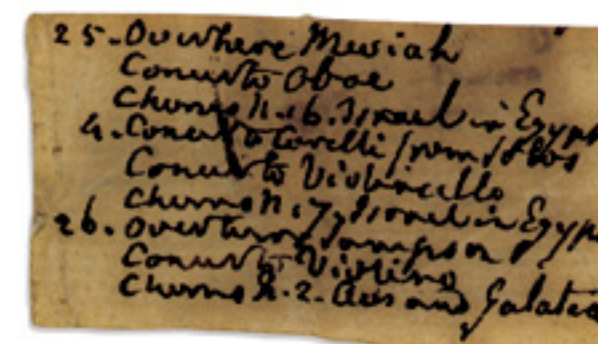 25. Overture Messiah
Concerto Oboe
Chorus N. 16. Israel in Egypt
4. Concerto Corelli from
Concerto Violincello
Chorus N. 7, Israel in Egyp
26. Overture Sampson
Concerto Violino
Chorus N. 2. Acis and Galatea